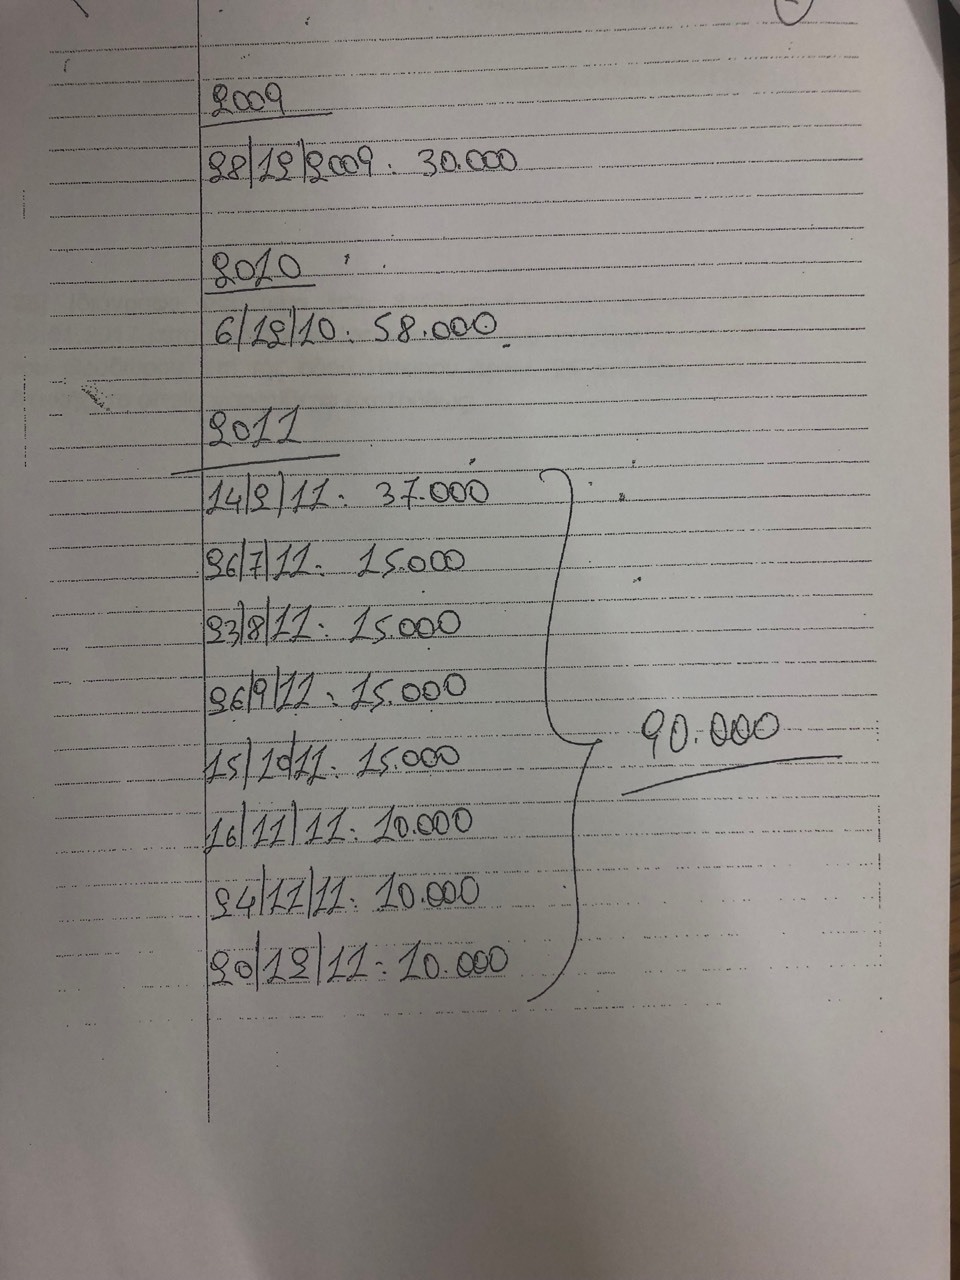 2009
28/12/2009: 30.000
2010
6/12/10: 58.000
2011
14/2/11: 37.000
26/7/11: 15.000
23/8/11: 15.000
26/9/11: 15.000
15/10/11: 15.000
16/11/11: 10.000
24/11/11: 10.000
20/12/11: 10.000
90.000